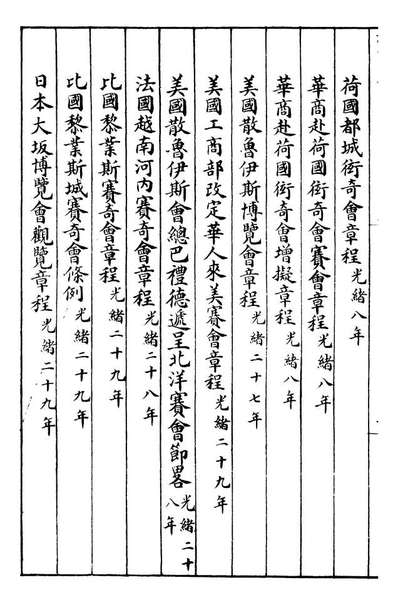 荷國都城衒奇會章程光緒八年
華商赴荷國衒奇會賽會章程光緒八年
華商赴荷國衒奇會增擬章程光緒八年
美國散魯伊斯博覽會章程光緒二十七年
美國工商部改定華人來美賽會章程光緒二十九年
美國散魯伊斯會總巴禮德遞呈北洋賽會節畧光緒二十八年
法國越南河內賽奇會章程光緒二十八年
比國黎業斯賽奇會章程光緒二十九年
比國黎業斯城賽奇會條例光緒二十九年
日本大坂博覽會觀覽章程光緒二十九年